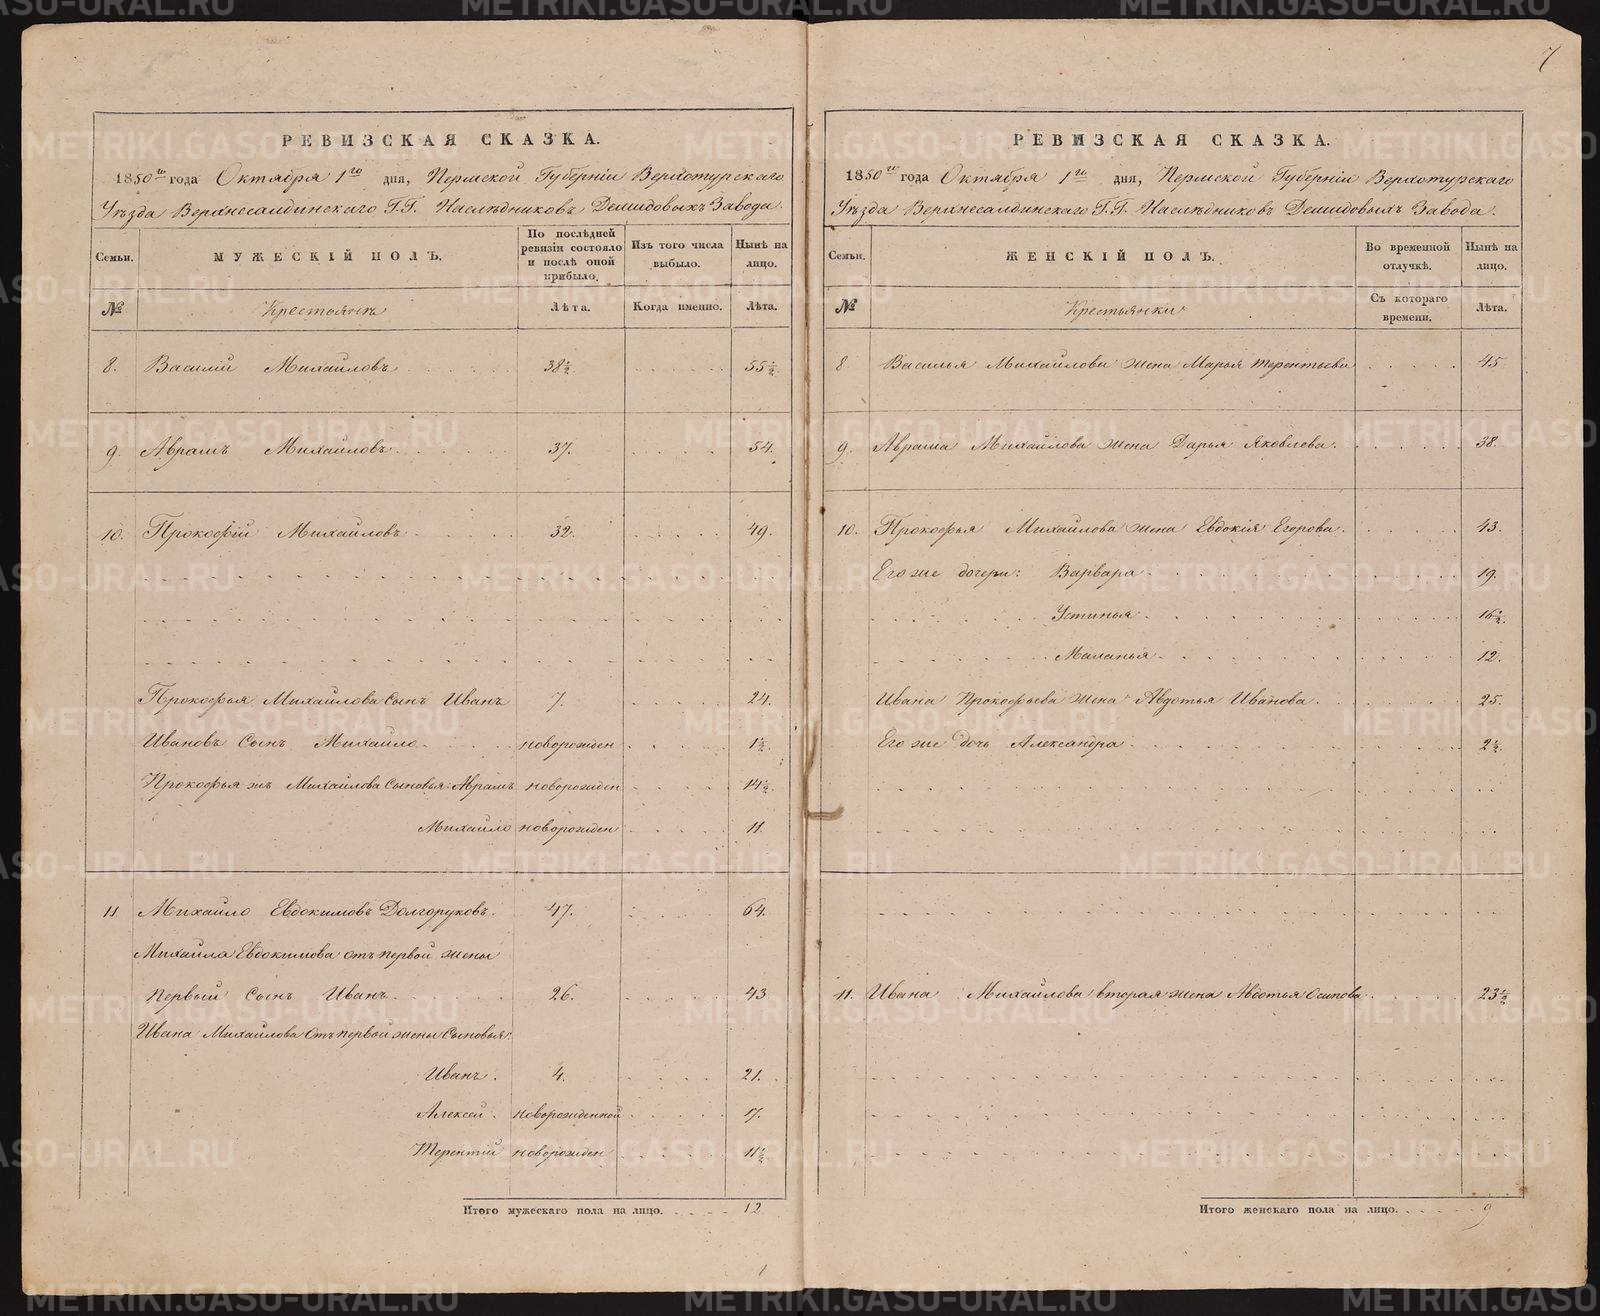 7
РЕВИЗСКАЯ СКАЗКА.
1850го года Октября 1го дня, Пермской Губерніи Верхотурскаго
Уѣзда Верхнесалдинскаго Г.Г. Наслѣдниковъ Демидовыхъ Завода.
Семьи. МУЖЕСКІЙ ПОЛЪ. По послѣдней ревизіи состояло и послѣ оной прибыло. Изъ того числа выбыло. Нынѣ на лицо.
№ Крестьянъ Лѣта. Когда именно. Лѣта.
8. Василій Михайловъ 38½ 55½
9. Аврамъ Михайловъ 37. 54.
10. Прокофій Михайловъ 32. 49.
Прокофья Михайлова Сынъ Иванъ 7. 24.
Ивановъ Сынъ Михайло новорожден 1½
Прокофья жъ Михайлова Сыновья: Аврамъ новорожден 14½
Михайло новорожден 11.
11 Михайло Евдокимовъ Долгоруковъ. 47. 64.
Михайла Евдокимова отъ первой жены
первый Сынъ Иванъ 26. 43
Ивана Михайлова отъ первой жены Сыновья:
Иванъ. 4. 21.
Алексей новорожденной 17.
Терентій новорожден 11½
Итого мужескаго пола на лицо. 12
РЕВИЗСКАЯ СКАЗКА.
1850го года Октября 1го дня, Пермской Губерніи Верхотурскаго
Уѣзда Верхнесалдинскаго Г.Г. Наслѣдниковъ Демидовыхъ Завода.
Семьи. ЖЕНСКІЙ ПОЛЪ. Во временной отлучкѣ. Нынѣ на лицо.
№ Крестьянки Съ котораго времени. Лѣта.
8 Василья Михайлова жена Марья Терентьева 45
9. Аврама Михайлова жена Дарья Яковлева. 38.
10. Прокофья Михайлова жена Евдокія Егорова. 43.
Его же дочери: Варвара 19.
Устинья 16½
Маланья 12.
Ивана Прокофьева жена Авдотья Иванова. 25.
Его же дочь Александра. 2½
11. Ивана Михайлова вторая жена Авдотья Осипова 23½
Итого женскаго пола на лицо. 9
METRIKI.GASO-URAL.RU